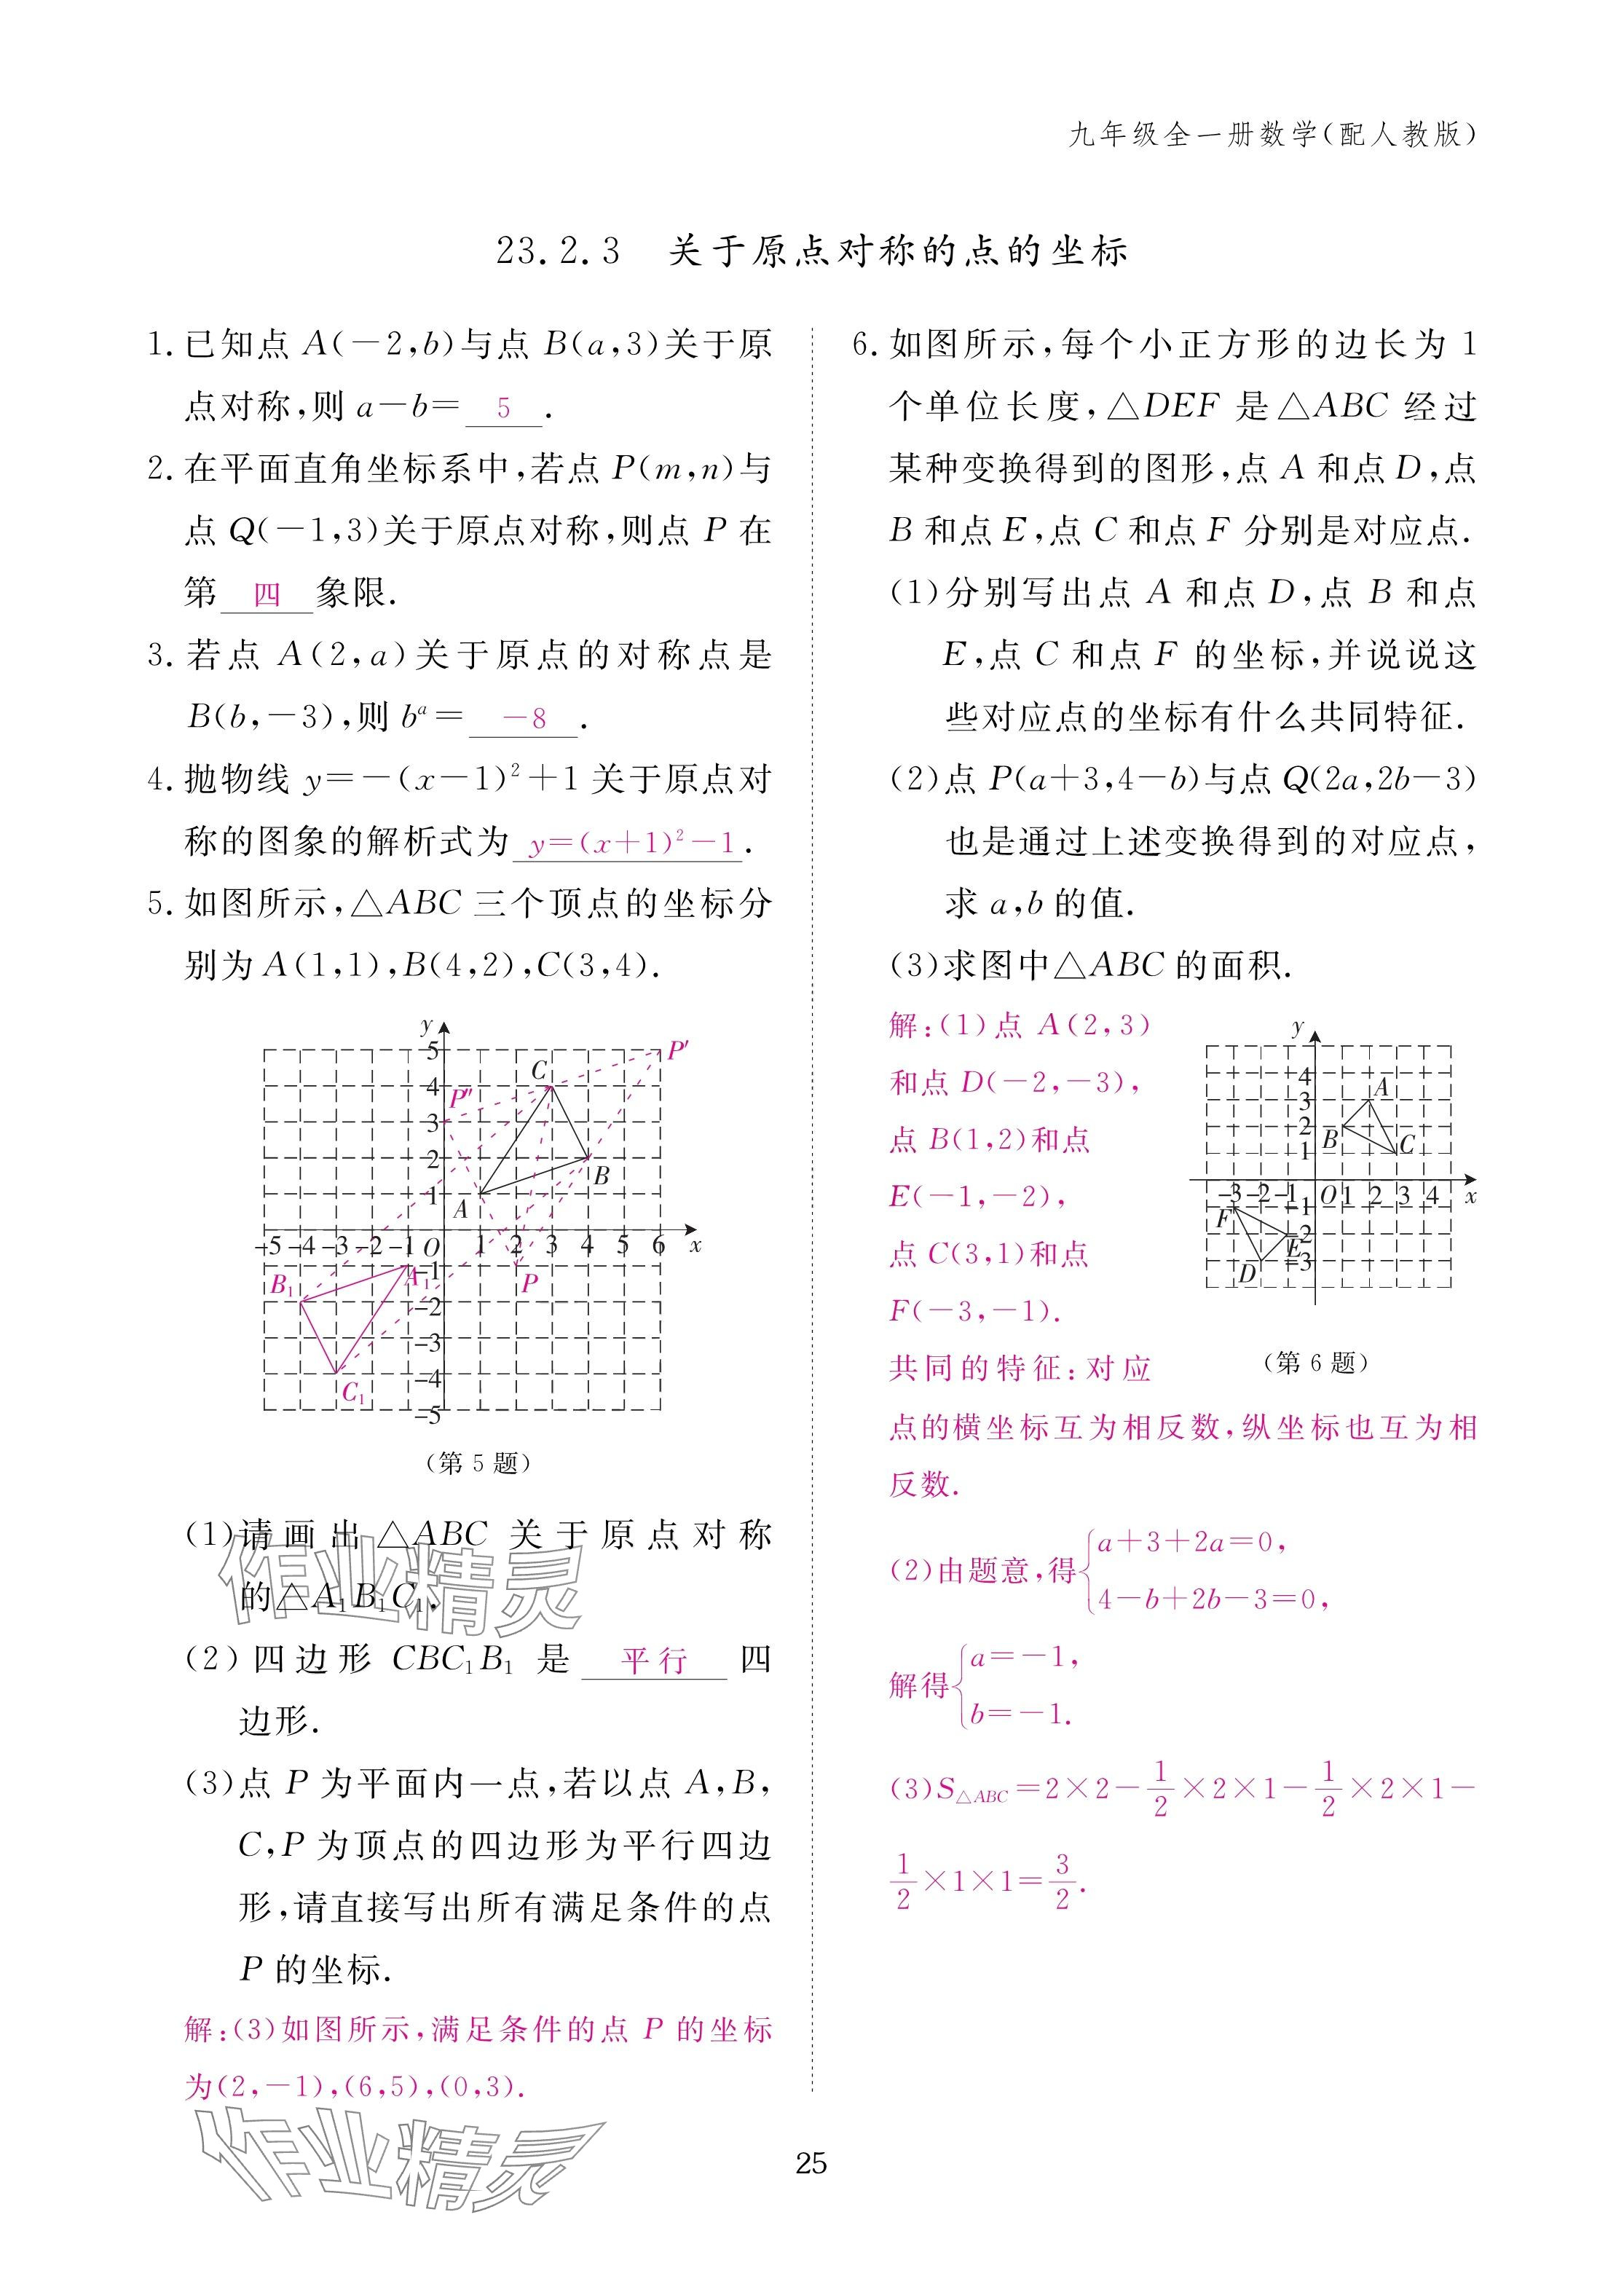 九年级全一册数学(配人教版)
23.2.3 关于原点对称的点的坐标
1. 已知点 A(-2,b)与点 B(a,3)关于原
点对称,则 a-b= 5 .
2. 在平面直角坐标系中,若点 P(m,n)与
点 Q(-1,3)关于原点对称,则点 P 在
第 四 象限.
3. 若点 A(2,a)关于原点的对称点是
B(b,-3),则 bᵃ= -8 .
4. 抛物线 y=-(x-1)²+1 关于原点对
称的图象的解析式为 y=(x+1)²-1 .
5. 如图所示,△ABC 三个顶点的坐标分
别为 A(1,1),B(4,2),C(3,4).
y
5
P′
C
4
P″
3
2
B
1
A
-5 -4 -3 -2 -1 O 1 2 3 4 5 6 x
B₁ A₁ -1 P
-2
-3
-4
C₁
-5
(第 5 题)
(1)请画出△ABC 关于原点对称
的△A₁B₁C₁.
(2)四边形 CBC₁B₁ 是 平行 四
边形.
(3)点 P 为平面内一点,若以点 A,B,
C,P 为顶点的四边形为平行四边
形,请直接写出所有满足条件的点
P 的坐标.
解:(3)如图所示,满足条件的点 P 的坐标
为(2,-1),(6,5),(0,3).
6. 如图所示,每个小正方形的边长为 1
个单位长度,△DEF 是△ABC 经过
某种变换得到的图形,点 A 和点 D,点
B 和点 E,点 C 和点 F 分别是对应点.
(1)分别写出点 A 和点 D,点 B 和点
E,点 C 和点 F 的坐标,并说说这
些对应点的坐标有什么共同特征.
(2)点 P(a+3,4-b)与点 Q(2a,2b-3)
也是通过上述变换得到的对应点,
求 a,b 的值.
(3)求图中△ABC 的面积.
解:(1)点 A(2,3)
和点 D(-2,-3),
点 B(1,2)和点
E(-1,-2),
点 C(3,1)和点
F(-3,-1).
y
4
A
3
2
B
C
1
-3 -2 -1 O 1 2 3 4 x
F
-1
-2
E
-3
D
(第 6 题)
共同的特征:对应
点的横坐标互为相反数,纵坐标也互为相
反数.
(2)由题意,得{a+3+2a=0,
4-b+2b-3=0,
解得{a=-1,
b=-1.
(3)S△ABC=2×2-1/2×2×1-1/2×2×1-
1/2×1×1=3/2.
作业精灵
作业精灵
25